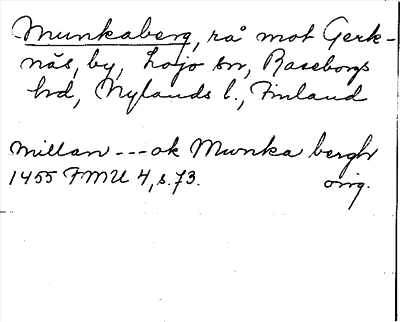 Munkaberg, rå mot Gerk-
näs, by, Lojo sn, Raseborgs
hd, Nylands l., Finland
millan --- ok Munka bergh
1455 FMU 4, s. 73. orig.